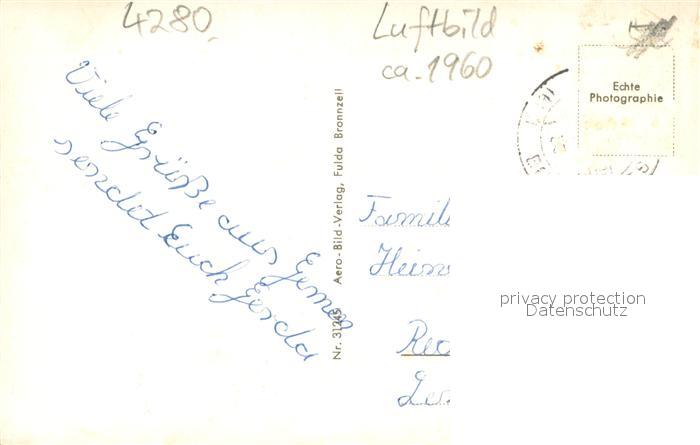 4280
Luftbild
ca. 1960
Echte
Photographie
Viele Grüße aus Gemen
sendet Euch Gerda
Nr. 31245 Aero-Bild-Verlag, Fulda Bronnzell
Famil
Hein
privacy protection
Datenschutz